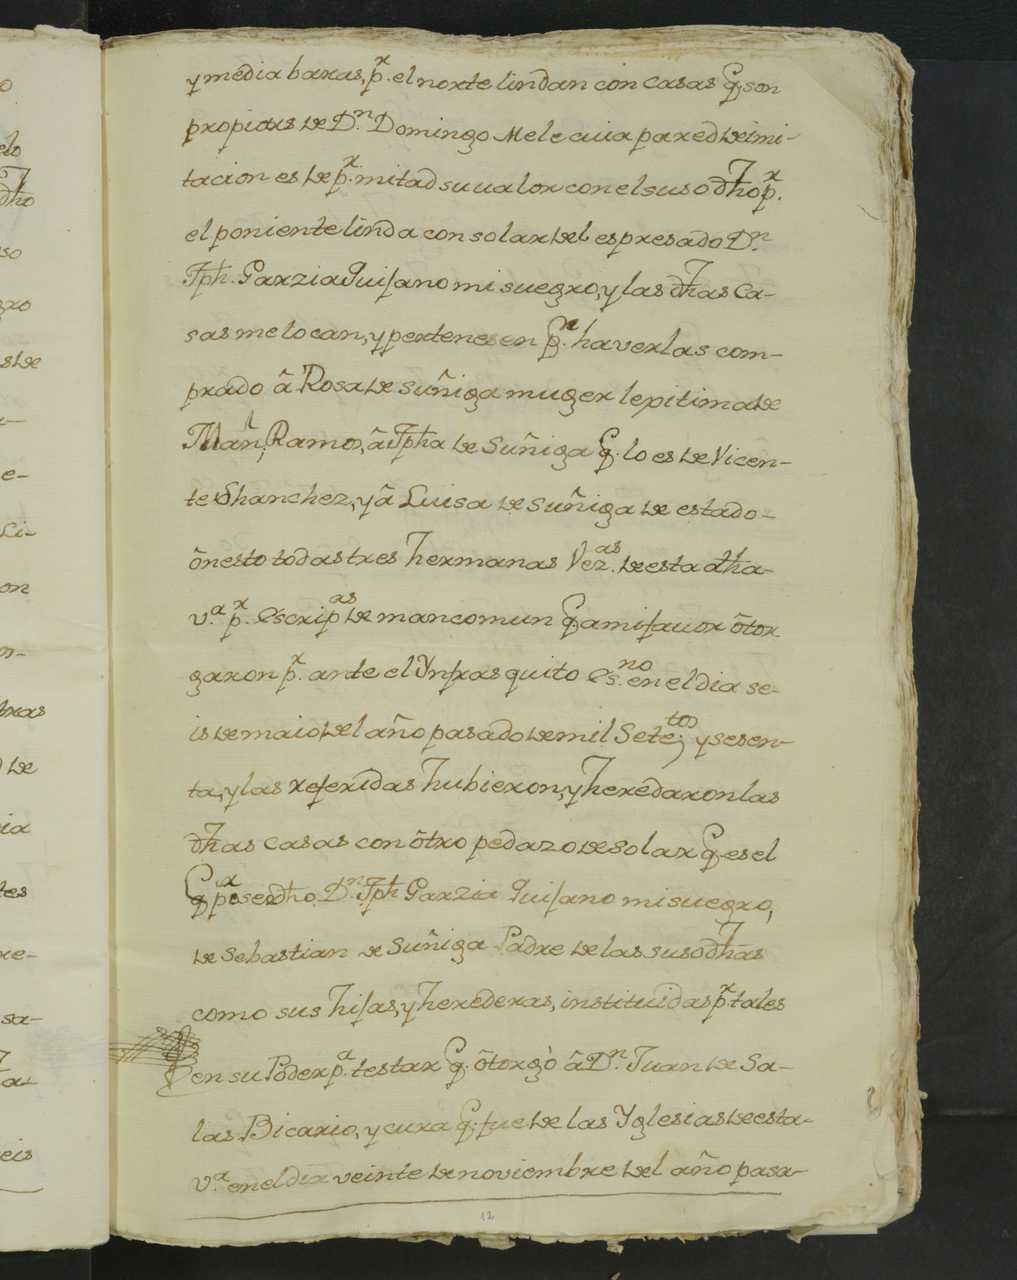 y media baras, p.r el norte lindan con casas q. son
propias de D.n Domingo Mele cuia pared de imi-
tacion es de p.r mitad su ualor con el suso dho p.r
el poniente linda con solar del espresado D.n
Jph. Garzia Quijano mi suegro, y las dhas ca-
sas me tocan, y pertenesen p.r haverlas com-
prado â Rosa de suñiga muger lexitima de
Man.l Ramos, â Jpha de Suñiga q. lo es de Vicen-
te Shanchez, y â Luisa de suñiga de estado-
ônesto todas tres hermanas Vez.as de esta dha-
v.a p.r escrip.as de mancomun q. a mi fauor ôtor
garon p.r ante el Ynfrasquito es.no en el dia se-
is de maio del año pasado de mil Sete.tos y sesen-
ta, y las referidas hubieron, y heredaron las
dhas casas con ôtro pedazo de solar q. es el
q. posee dho D.n Jph Garzia Quijano mi suegro,
de Sebastian de Suñiga Padre de las suso dhas
como sus hijas, y herederas, instituidas p.r tales
en su Poder p.a testar q. ôtorgò â D.n Juan de Sa-
las Bicario, y cura q. fue de las Yglesias de esta-
v.a en el dia veinte de noviembre del año pasa-
12